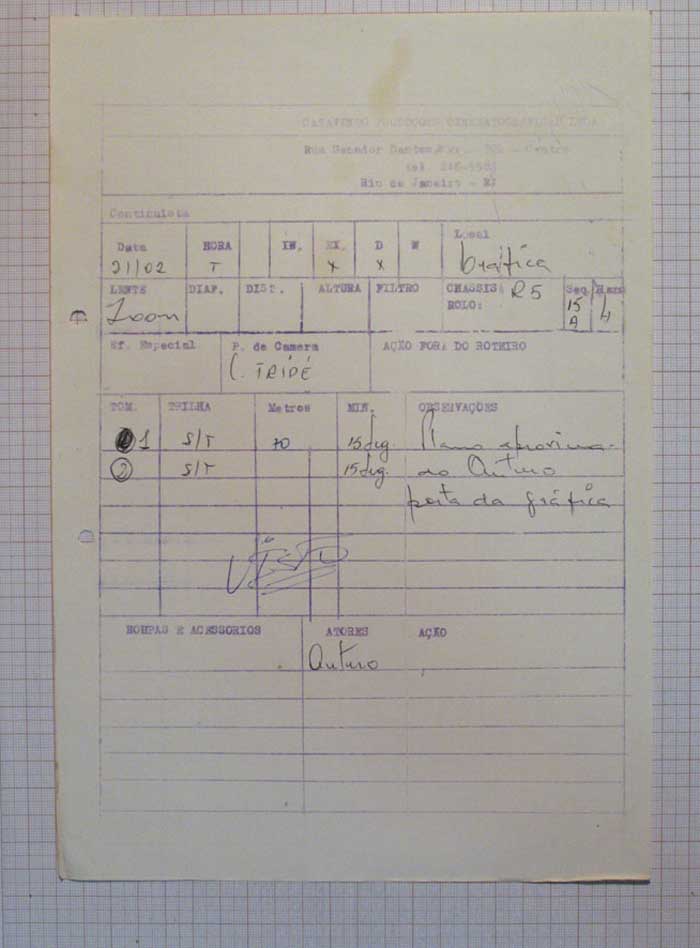 Rua Senador Dantas
Rio de Janeiro - RJ
Continuista
Data HORA IN. EX. D N Local
21/02 T X X Gráfica
LENTE DIAF. DIST. ALTURA FILTRO CHASSIS: R5 Seq
Zoom ROLO: 15 A 4
Ef. Especial P. de Camera AÇÃO FORA DO ROTEIRO
C. TRIPÉ
TOM. TRILHA Metros MIN. OBSERVAÇÕES
1 S/T 70 15 seg. Plano aproxima-
2 S/T 15 seg. do Arturo
porta da gráfica
VISTO
ROUPAS E ACESSORIOS ATORES AÇÃO
Arturo